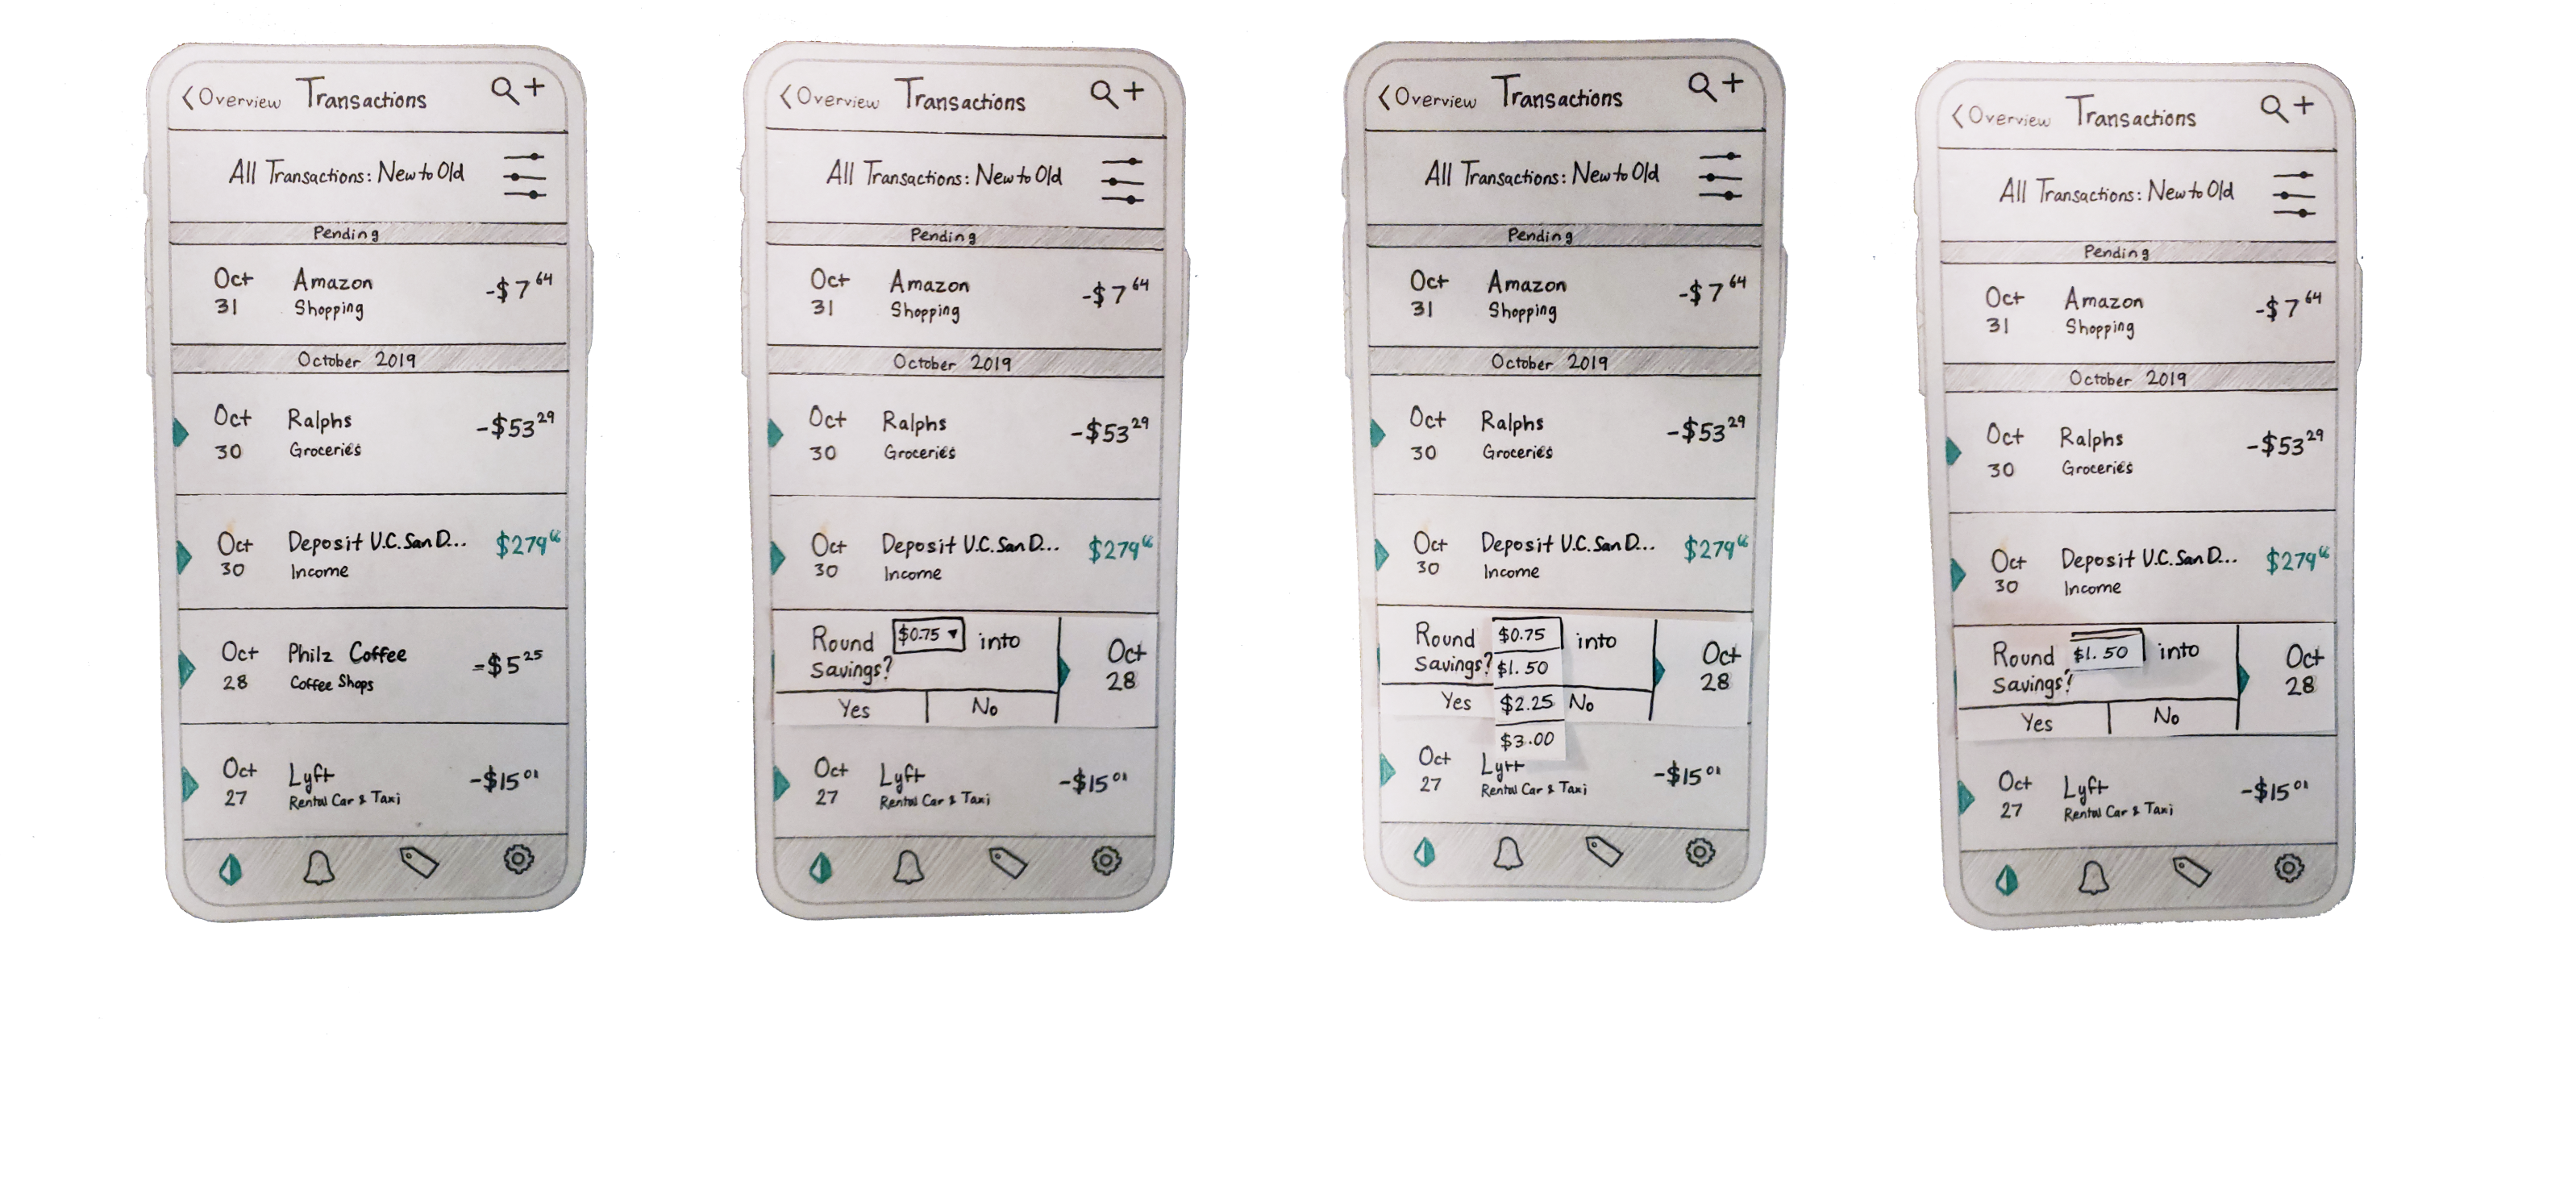 < Overview Transactions
All Transactions: New to Old
Pending
Oct 31 Amazon Shopping -$7 64
October 2019
Oct 30 Ralphs Groceries -$53 29
Oct 30 Deposit U.C. San D... Income $279 66
Oct 28 Philz Coffee Coffee Shops -$5 25
Oct 27 Lyft Rental Car & Taxi -$15 01
< Overview Transactions
All Transactions: New to Old
Pending
Oct 31 Amazon Shopping -$7 64
October 2019
Oct 30 Ralphs Groceries -$53 29
Oct 30 Deposit U.C. San D... Income $279 66
Round $0.75 ▼ into
Savings?
Yes No
Oct 28
Oct 27 Lyft Rental Car & Taxi -$15 01
< Overview Transactions
All Transactions: New to Old
Pending
Oct 31 Amazon Shopping -$7 64
October 2019
Oct 30 Ralphs Groceries -$53 29
Oct 30 Deposit U.C. San D... Income $279 66
Round $0.75 into
Savings? $1.50
Yes $2.25 No
$3.00
Oct 28
Oct 27 Lyft Rental Car & Taxi -$15 01
< Overview Transactions
All Transactions: New to Old
Pending
Oct 31 Amazon Shopping -$7 64
October 2019
Oct 30 Ralphs Groceries -$53 29
Oct 30 Deposit U.C. San D... Income $279 66
Round $1.50 into
Savings?
Yes No
Oct 28
Oct 27 Lyft Rental Car & Taxi -$15 01